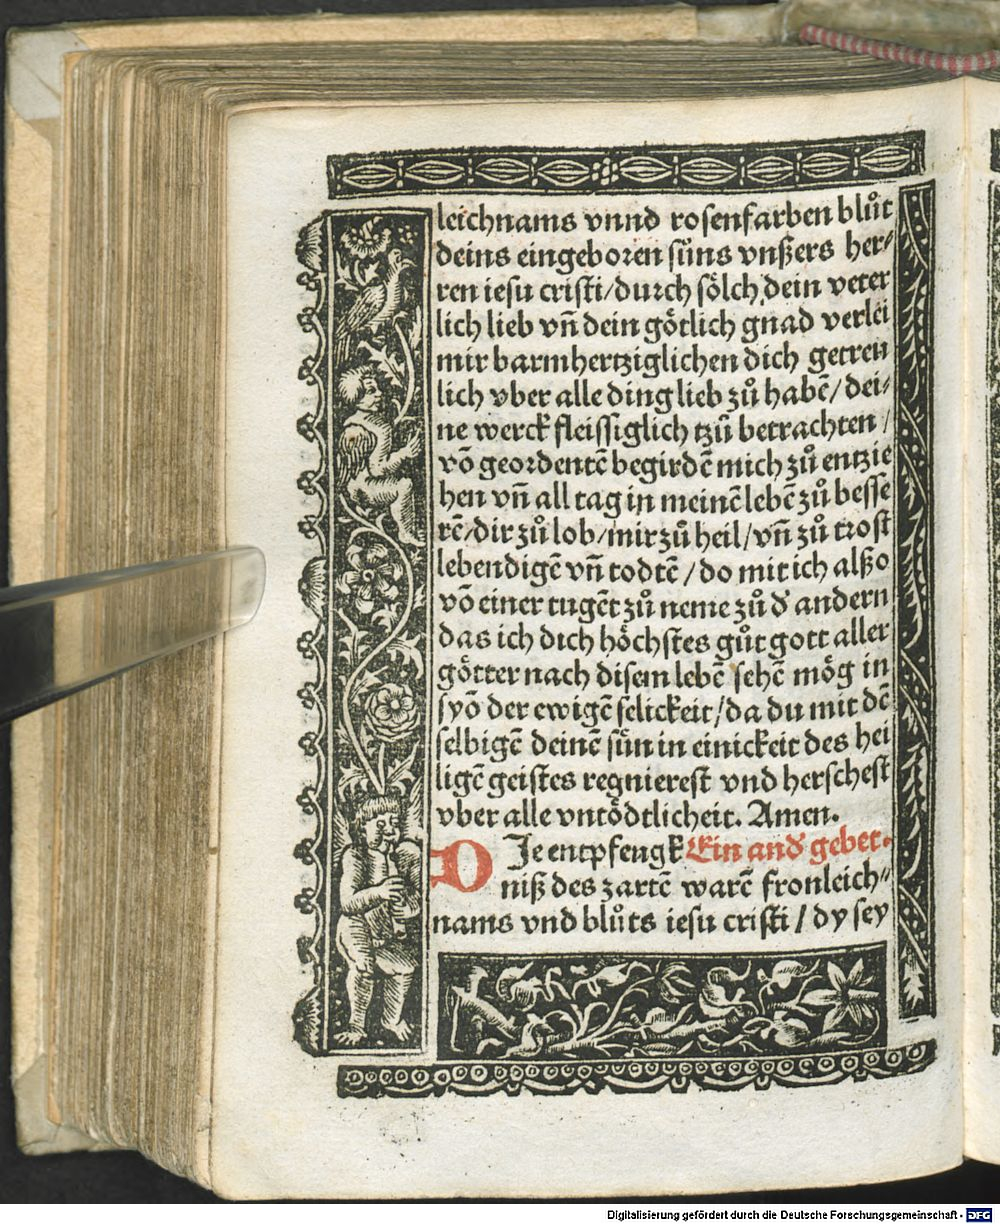 leichnams vnnd rosenfarben blůt
deins eingeboren sůns vnßers her⸗
ren iesu cristi/durch sölch dein veter
lich lieb vn̄ dein götlich gnad verlei
mir barmhertziglichen dich getreu
lich vber alle ding lieb zů habē/dei⸗
ne werck fleissiglich tzů betrachten /
vō geordentē begirdē mich zů entzie
hen vn̄ all tag in meinē lebē zů besse
rē/dir zů lob/mir zů heil/vn̄ zů trost
lebendigē vn̄ todtē /do mit ich alßo
vō einer tugēt zů neme zů d̕ andern
das ich dich höchstes gůt gott aller
götter nach disem lebē sehē mög in
syō der ewigē selickeit/da du mit dē
selbigē deinē sůn in einickeit des hei
ligē geistes regnierest vnd herschest
vber alle vntödtlicheit. Amen.
DJe entpfengk Ein and̕ gebet.
niß des zartē warē fronleich⸗
nams vnd blůts iesu cristi / dy sey
Digitalisierung gefördert durch die Deutsche Forschungsgemeinschaft - DFG